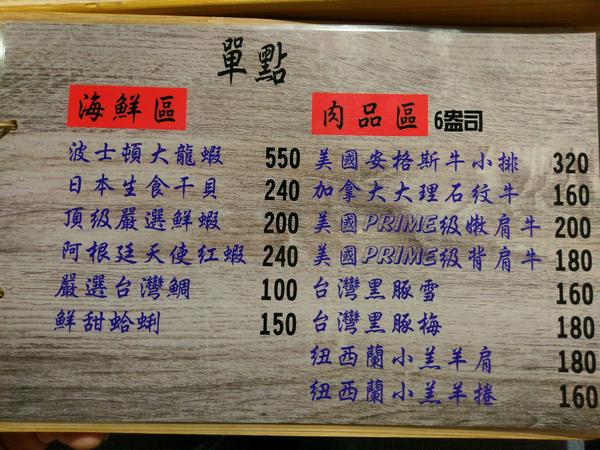 單點
海鮮區
波士頓大龍蝦 550
日本生食干貝 240
頂級嚴選鮮蝦 200
阿根廷天使紅蝦 240
嚴選台灣鯛 100
鮮甜蛤蜊 150
肉品區 6盎司
美國安格斯牛小排 320
加拿大大理石紋牛 160
美國PRIME級嫩肩牛 200
美國PRIME級背肩牛 180
台灣黑豚雪 160
台灣黑豚梅 180
紐西蘭小羔羊肩 180
紐西蘭小羔羊捲 160